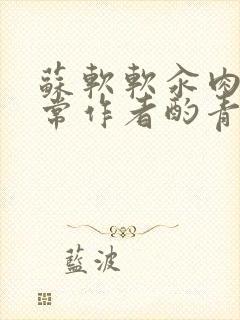 蘇軟軟汆肉
常作者酌青
藍波